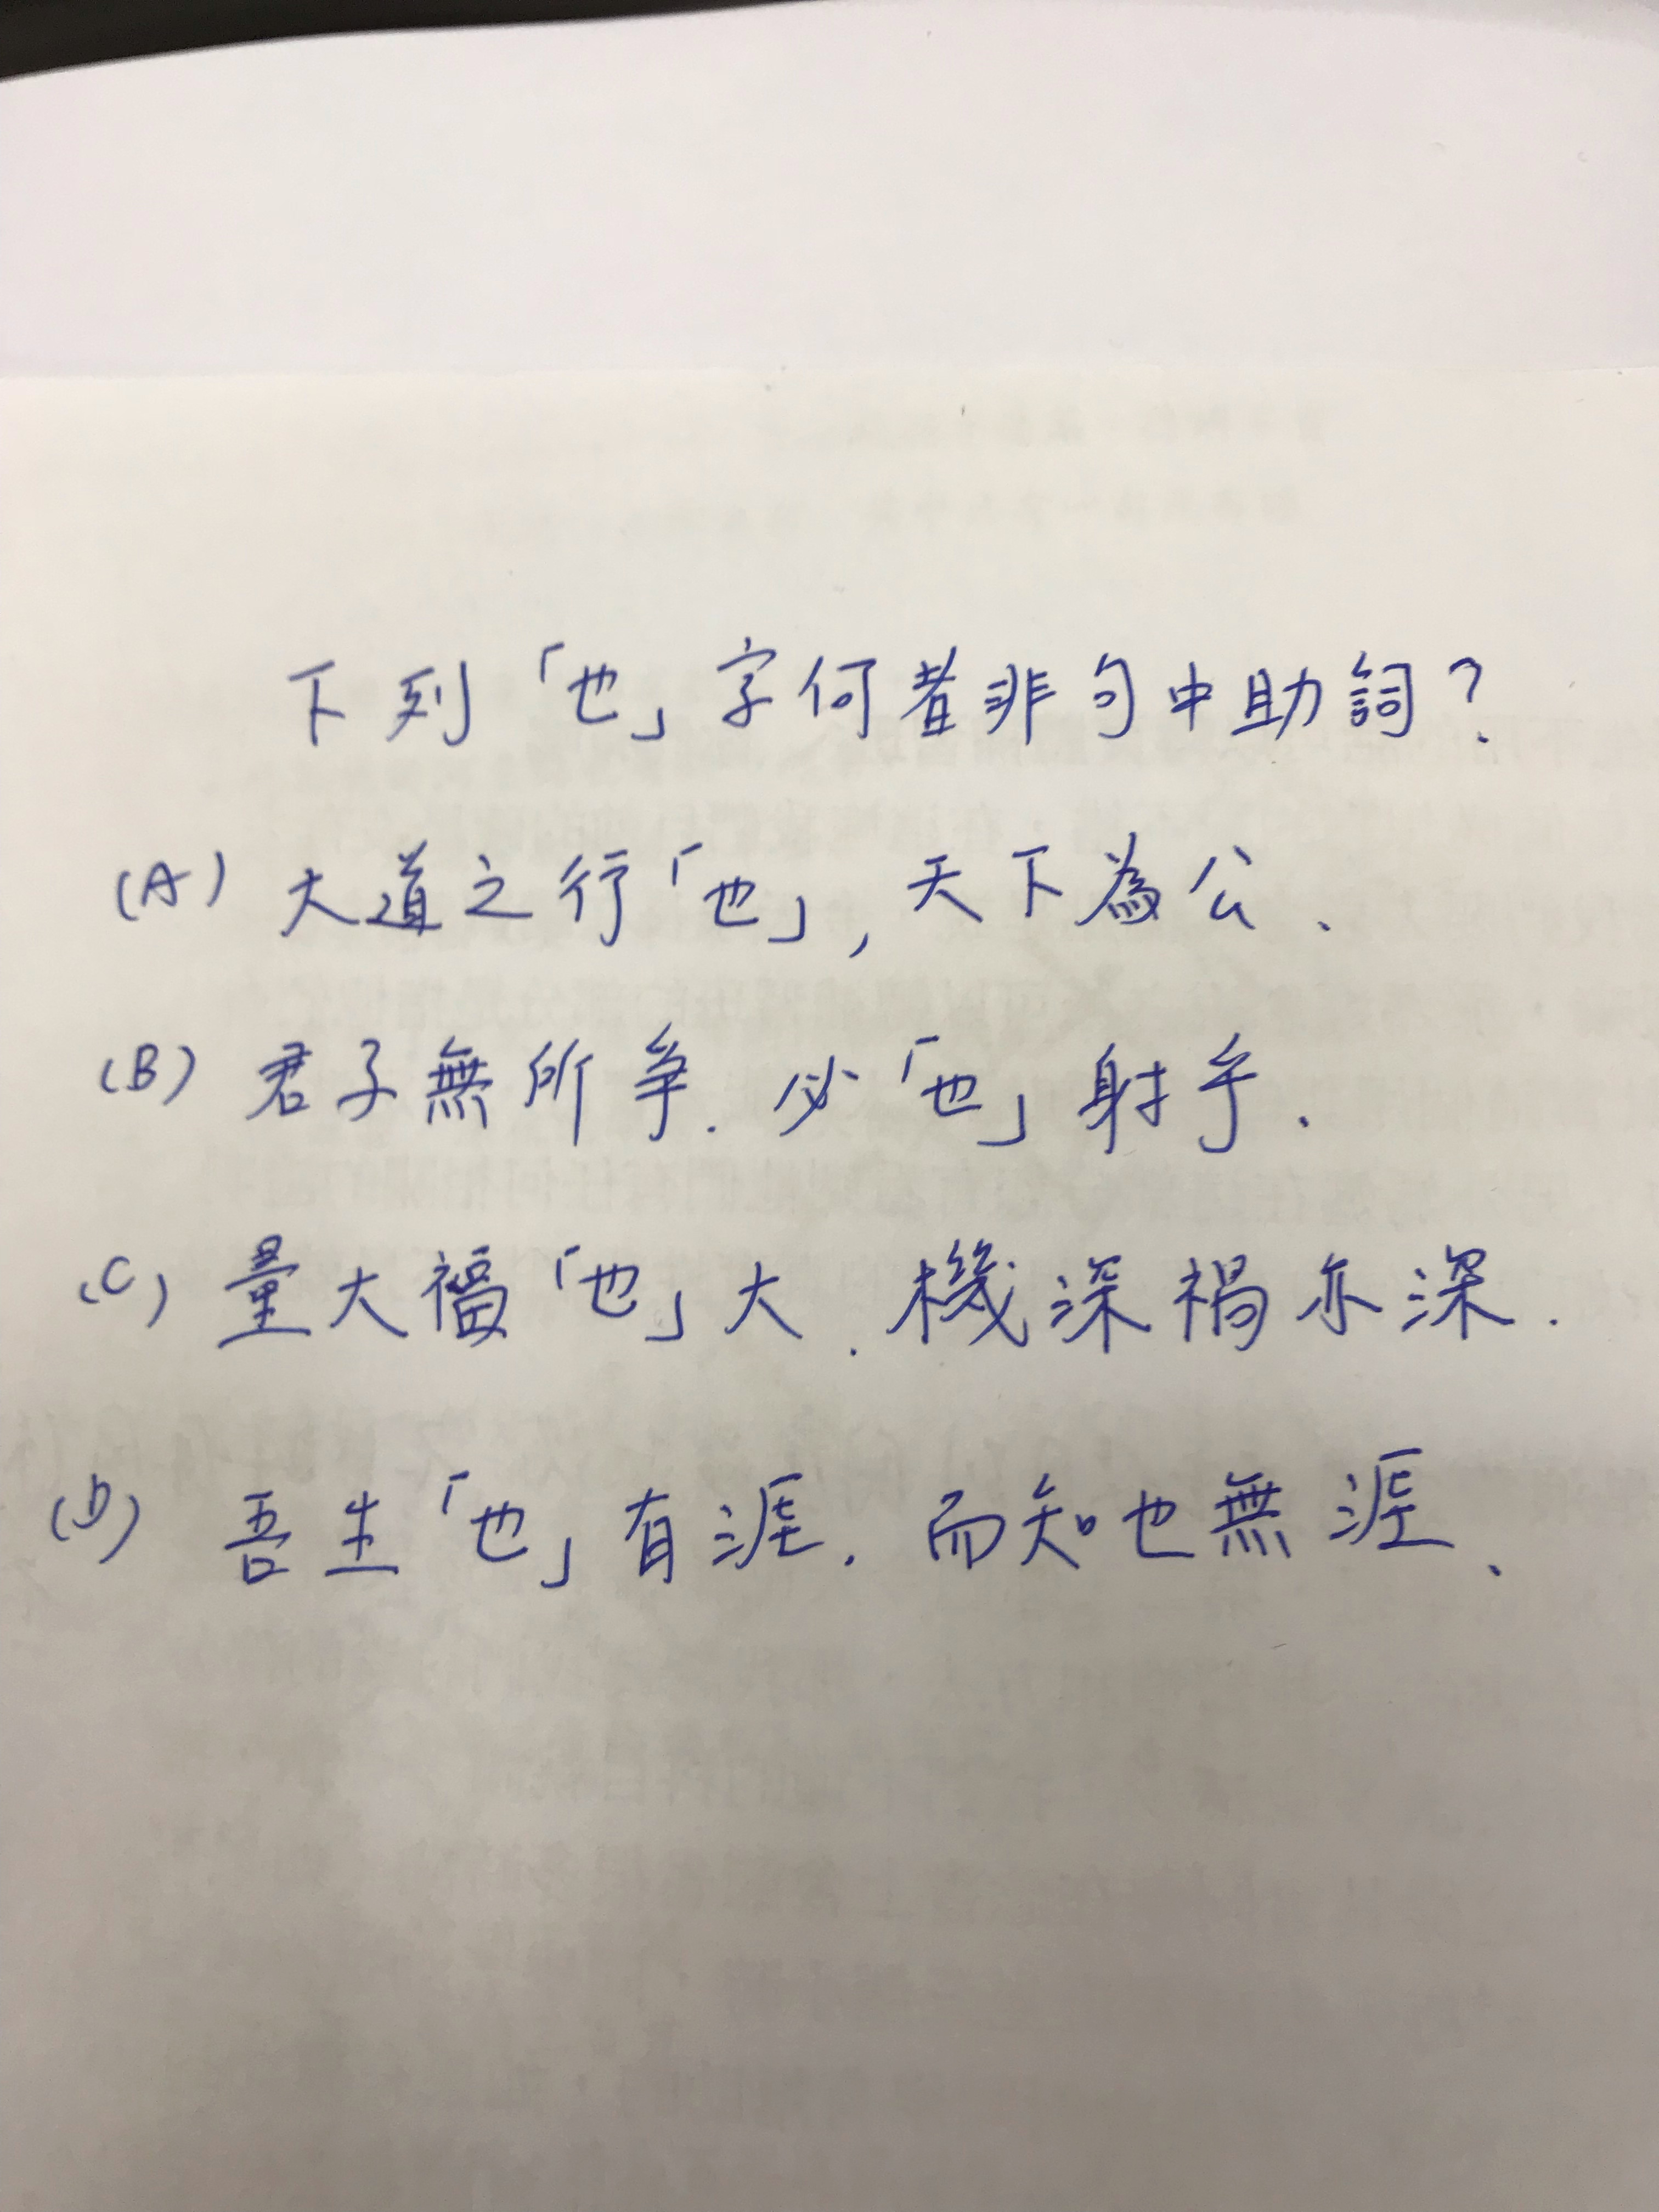 下列「也」字何者非句中助詞?
(A) 大道之行「也」, 天下為公.
(B) 君子無所爭. 必「也」射乎.
(C) 量大福「也」大. 機深禍亦深.
(D) 吾生「也」有涯. 而知也無涯.